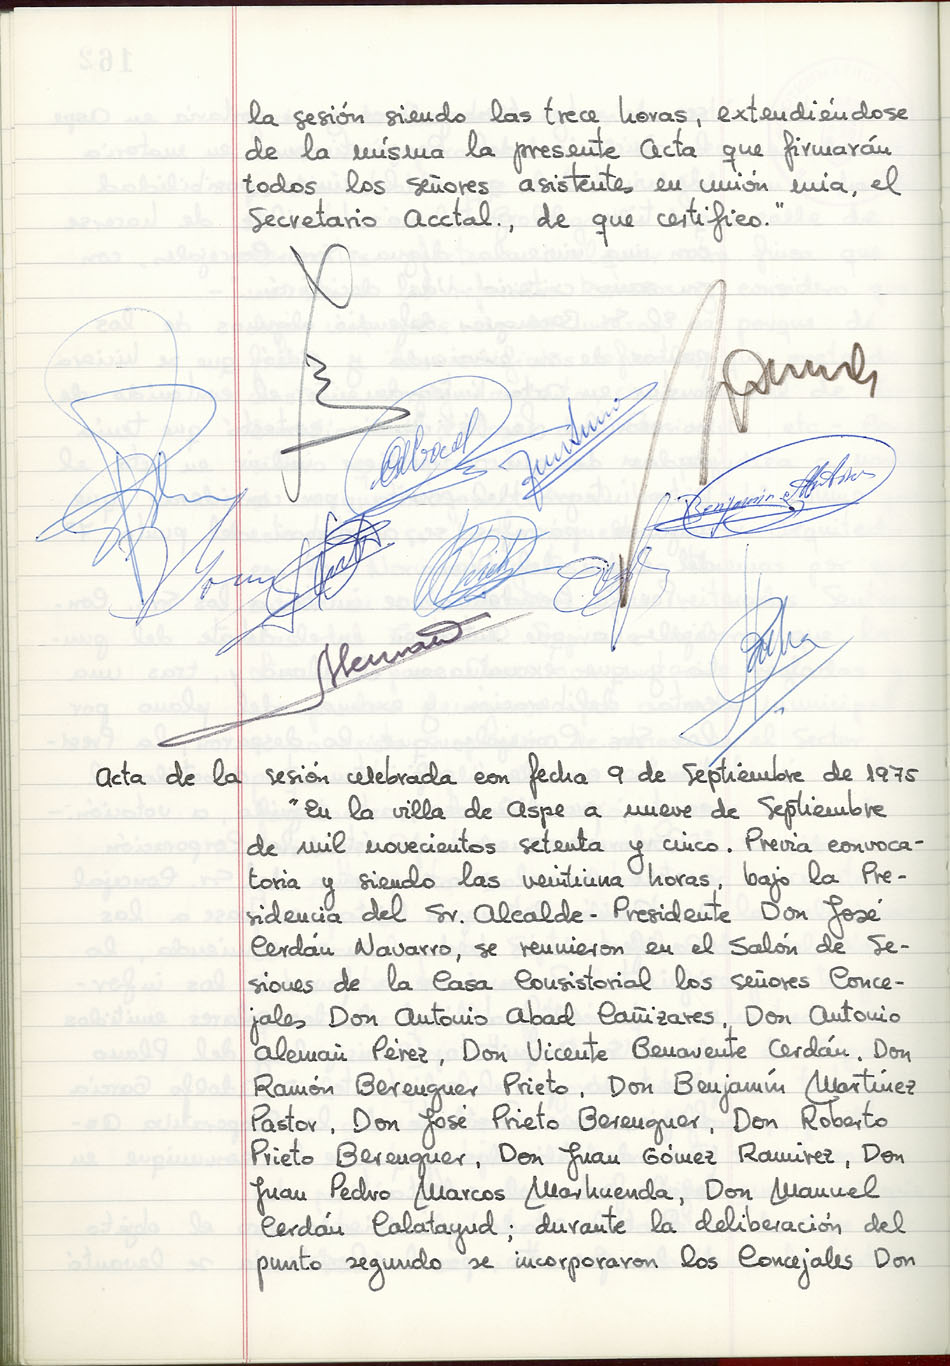 la sesión siendo las trece horas, extendiéndose
de la misma la presente Acta que firmarán
todos los señores asistentes en unión mia, el
Secretario Acctal., de que certifico."
Benjamín Martínez
Acta de la sesión celebrada con fecha 9 de Septiembre de 1975
"En la villa de Aspe a nueve de Septiembre
de mil novecientos setenta y cinco. Previa convoca-
toria y siendo las veintiuna horas, bajo la Pre-
sidencia del Sr. Alcalde-Presidente Don José
Cerdán Navarro, se reunieron en el Salón de Se-
siones de la Casa Consistorial los señores Conce-
jales Don Antonio Abad Cañizares, Don Antonio
Alemañ Pérez, Don Vicente Benavente Cerdán, Don
Ramón Berenguer Prieto, Don Benjamín Martínez
Pastor, Don José Prieto Berenguer, Don Roberto
Prieto Berenguer, Don Juan Gómez Ramirez, Don
Juan Pedro Marcos Marhuenda, Don Manuel
Cerdán Calatayud; durante la deliberación del
punto segundo se incorporaron los Concejales Don